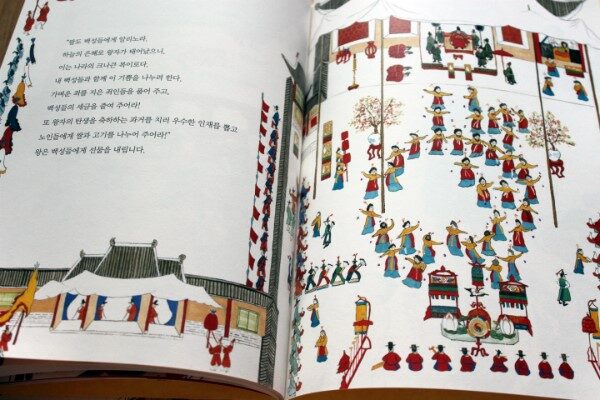 "팔도 백성들에게 알리노라.
하늘의 은혜로 왕자가 태어났으니,
이는 나라의 크나큰 복이로다.
내 백성들과 함께 이 기쁨을 나누려 한다.
가벼운 죄를 지은 죄인들을 풀어 주고,
백성들의 세금을 줄여 주어라!
또 왕자의 탄생을 축하하는 과거를 치러 우수한 인재를 뽑고
노인들에게 쌀과 고기를 나누어 주어라!"
왕은 백성들에게 선물을 내립니다.